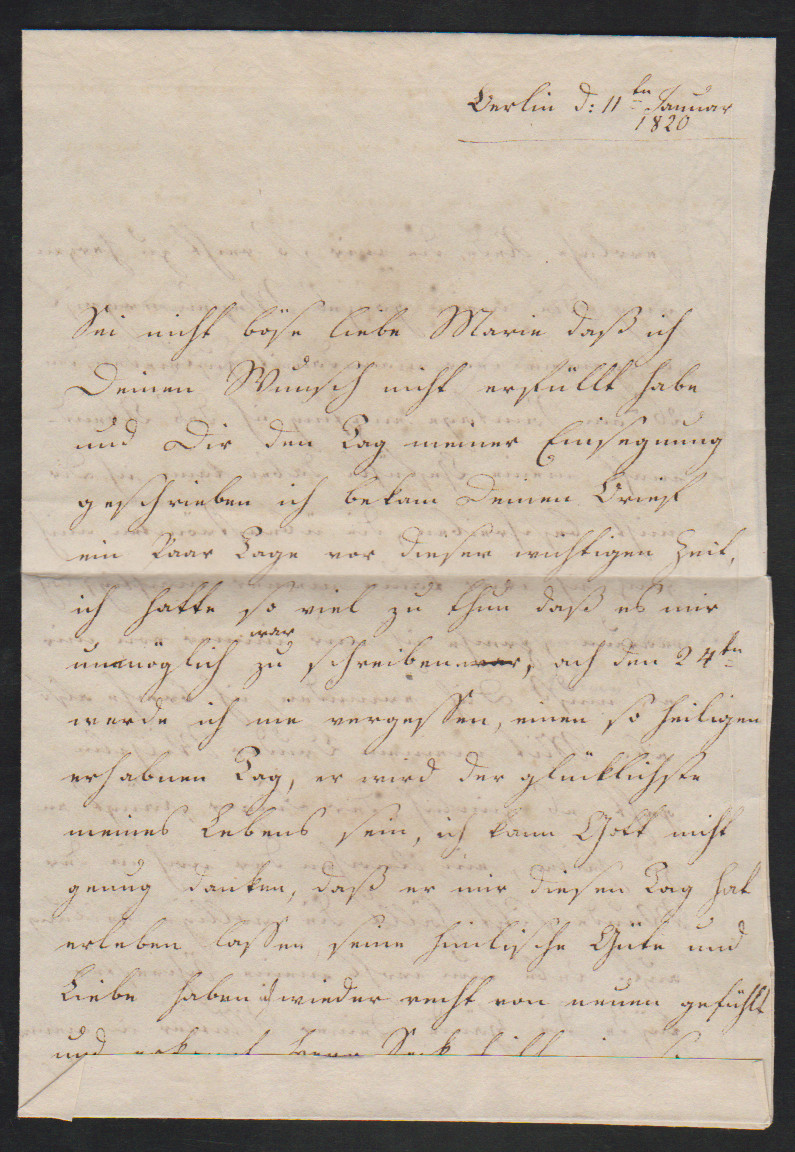 Berlin d: 11ten Januar
1820
Sei nicht böse liebe Marie daß ich
Deinen Wunsch nicht erfüllt habe
und Dir den Tag meiner Einsegnung
geschrieben ich bekam Deinen Brief
ein Paar Tage vor dieser wichtigen Zeit,
ich hatte so viel zu thun daß es mir
war
unmöglich zu schreiben war, ach den 24ten
werde ich nie vergessen, einen so heiligen
erhabnen Tag, er wird der glücklichste
meines Lebens sein, ich kann Gott nicht
genug danken, daß er mir diesen Tag hat
erleben lassen seine himlische Güte und
Liebe haben wieder recht von neuen gefühlt
und